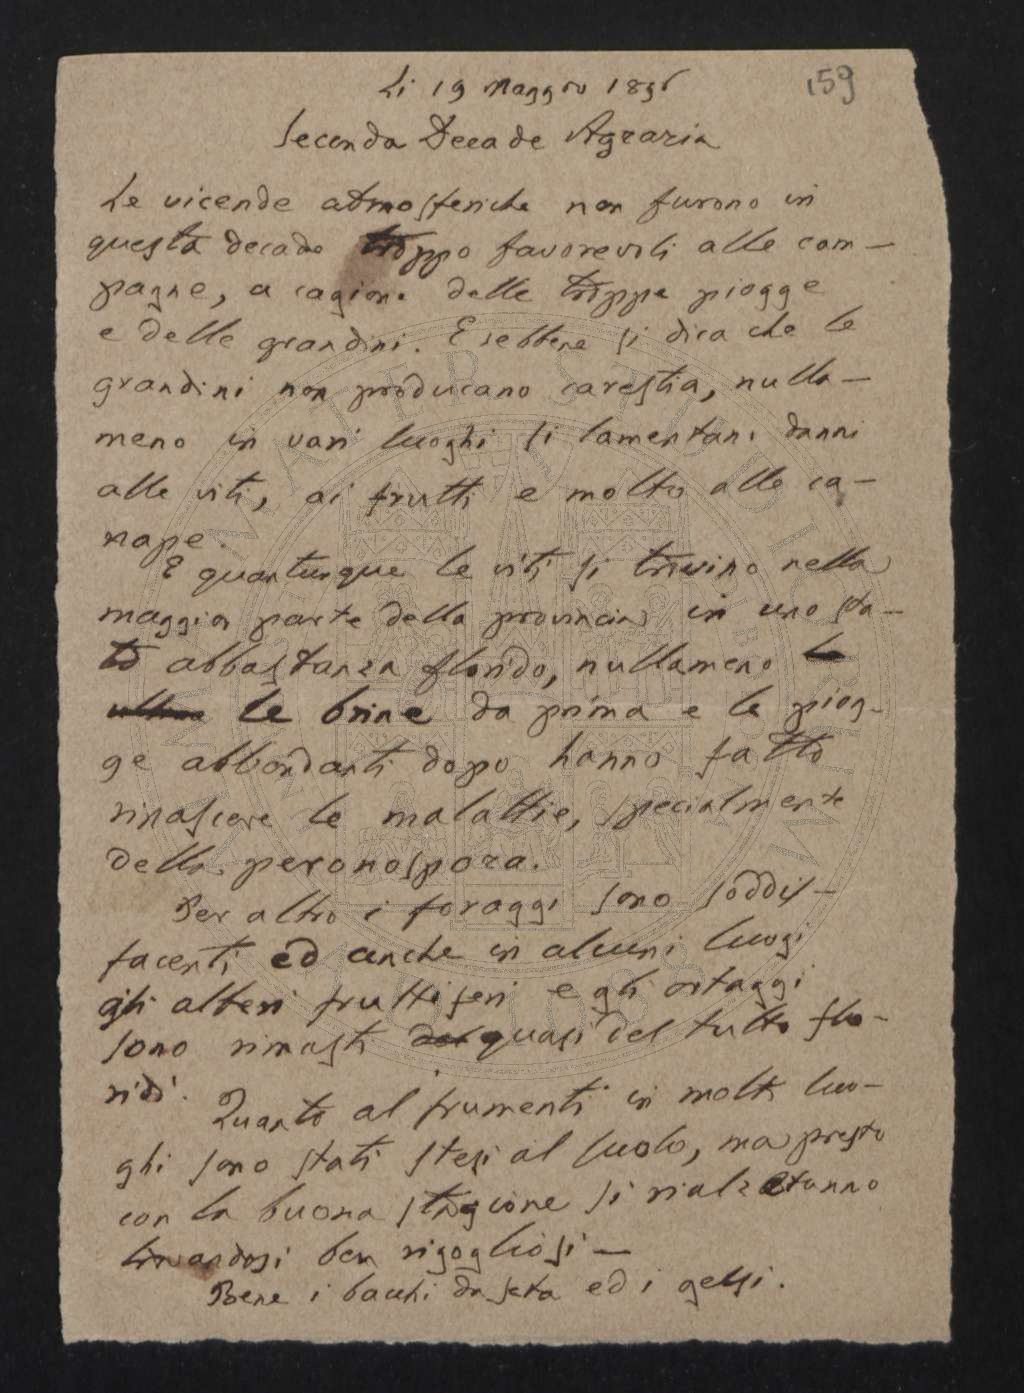 Li 19 Maggio 1896
159
Seconda Decade Agraria
Le vicende atmosferiche non furono in
questa decade troppo favorevoli alle cam-
pagne, a cagione delle troppe piogge
e delle grandini. E sebbene si dica che le
grandini non producano carestia, nulla-
meno in vari luoghi si lamentano danni
alle viti, ai frutti e molto alle ca-
nape.
E quantunque le viti si trovino nella
maggior parte della provincia in uno sta-
to abbastanza florido, nullameno le
le brine da prima e le piog-
ge abbondanti dopo hanno fatto
rinascere le malattie, specialmente
della peronospora.
Per altro i foraggi sono soddis-
facenti ed anche in alcuni luogi
gli alberi fruttiferi e gli ortaggi
sono rimasti quasi del tutto flo-
ridi.
Quanto al frumenti in molti luo-
ghi sono stati stesi al suolo, ma presto
con la buona stagione si rialzeranno
trovandosi ben rigogliosi —
Bene i bachi da seta ed i gelsi.
ALMA MATER STUDIORUM
A.D. 1088